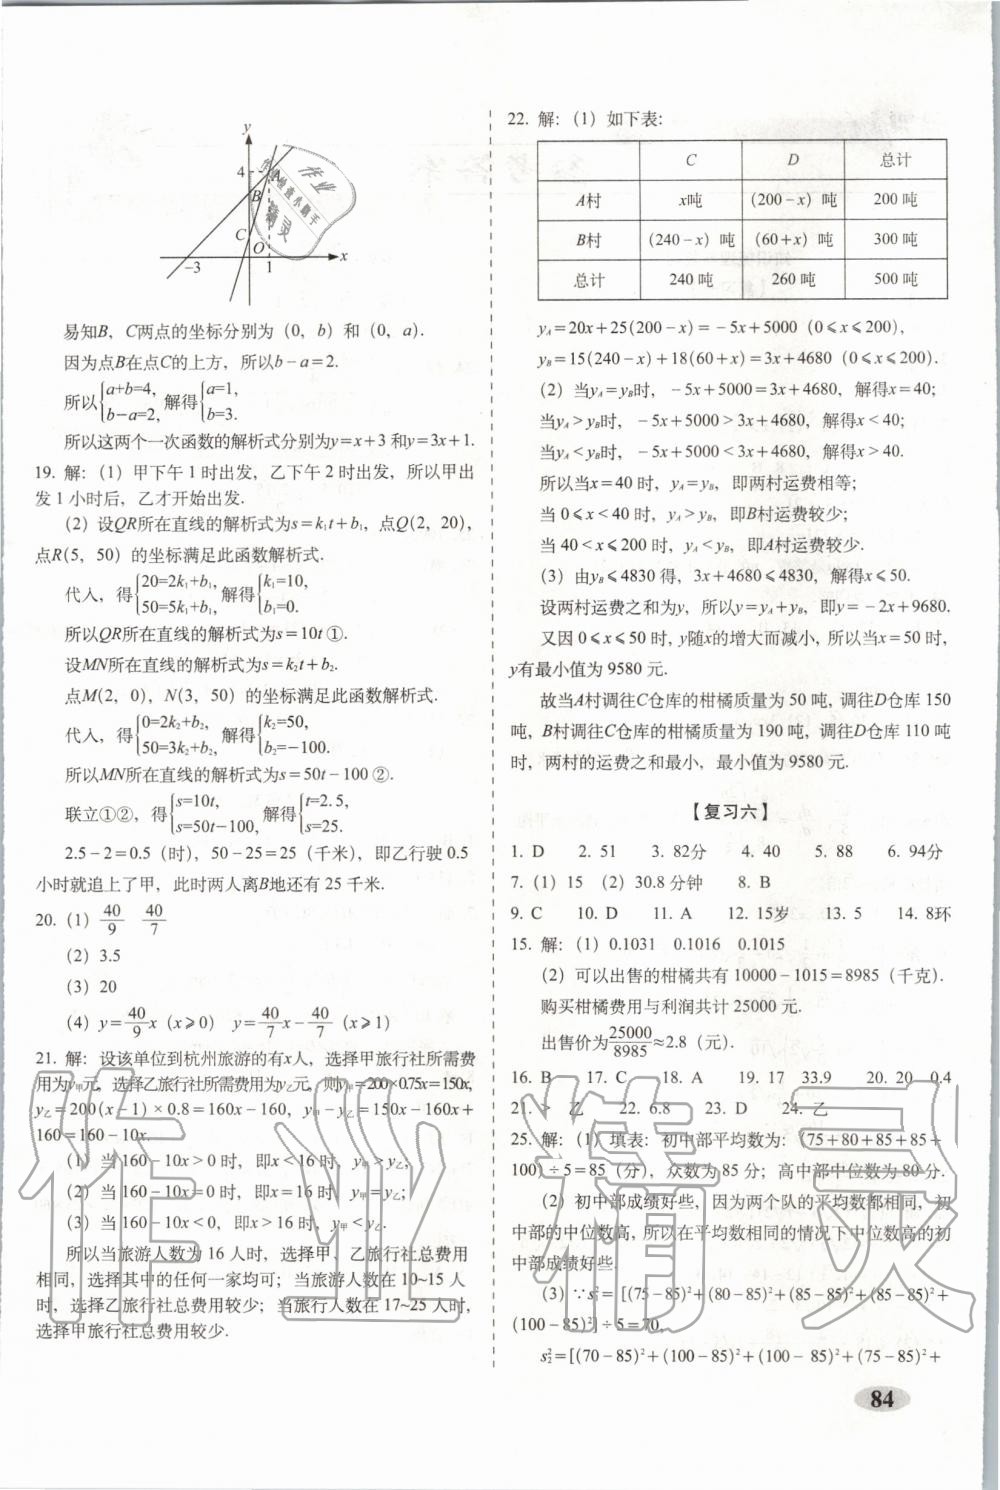 y
4
A
B
C
O
-3
1
x
易知B，C两点的坐标分别为（0，b）和（0，a）.
因为点B在点C的上方，所以b-a=2.
所以{a+b=4, b-a=2, 解得{a=1, b=3.
所以这两个一次函数的解析式分别为y=x+3 和y=3x+1.
19. 解：（1）甲下午 1 时出发，乙下午 2 时出发，所以甲出
发 1 小时后，乙才开始出发.
（2）设QR所在直线的解析式为s=k₁t+b₁，点Q(2，20)，
点R(5，50）的坐标满足此函数解析式.
代入，得{20=2k₁+b₁, 50=5k₁+b₁, 解得{k₁=10, b₁=0.
所以QR所在直线的解析式为s=10t ①.
设MN所在直线的解析式为s=k₂t+b₂.
点M(2，0)，N(3，50）的坐标满足此函数解析式.
代入，得{0=2k₂+b₂, 50=3k₂+b₂, 解得{k₂=50, b₂=-100.
所以MN所在直线的解析式为s=50t-100 ②.
联立①②，得{s=10t, s=50t-100, 解得{t=2.5, s=25.
2.5-2=0.5（时），50-25=25（千米），即乙行驶 0.5
小时就追上了甲，此时两人离B地还有 25 千米.
20. (1) 40/9 40/7
(2) 3.5
(3) 20
(4) y=40/9x（x⩾0） y=40/7x-40/7（x⩾1）
21. 解：设该单位到杭州旅游的有x人，选择甲旅行社所需费
用为y甲元，选择乙旅行社所需费用为y乙元，则y甲=200×0.75x=150x，
y乙=200(x-1)×0.8=160x-160，y甲-y乙=150x-160x+
160=160-10x.
(1) 当 160-10x>0 时，即x<16 时，y甲>y乙；
(2) 当 160-10x=0 时，即x=16 时，y甲=y乙；
(3) 当 160-10x<0，即x>16 时，y甲<y乙.
所以当旅游人数为 16 人时，选择甲、乙旅行社总费用
相同，选择其中的任何一家均可；当旅游人数在 10~15 人
时，选择乙旅行社总费用较少；当旅行人数在 17~25 人时，
选择甲旅行社总费用较少.
22. 解：（1）如下表：
C D 总计
A村 x吨 (200-x）吨 200 吨
B村 (240-x）吨 (60+x）吨 300 吨
总计 240 吨 260 吨 500 吨
yA=20x+25(200-x)=-5x+5000（0⩽x⩽200)，
yB=15(240-x)+18(60+x)=3x+4680（0⩽x⩽200).
(2) 当yA=yB时，-5x+5000=3x+4680，解得x=40；
当yA>yB时，-5x+5000>3x+4680，解得x<40；
当yA<yB时，-5x+5000<3x+4680，解得x>40.
所以当x=40 时，yA=yB，即两村运费相等；
当 0⩽x<40 时，yA>yB，即B村运费较少；
当 40<x⩽200 时，yA<yB，即A村运费较少.
(3) 由yB⩽4830 得，3x+4680⩽4830，解得x⩽50.
设两村运费之和为y，所以y=yA+yB，即y=-2x+9680.
又因 0⩽x⩽50 时，y随x的增大而减小，所以当x=50 时，
y有最小值为 9580 元.
故当A村调往C仓库的柑橘质量为 50 吨，调往D仓库 150
吨，B村调往C仓库的柑橘质量为 190 吨，调往D仓库 110 吨
时，两村的运费之和最小，最小值为 9580 元.
【复习六】
1. D 2. 51 3. 82分 4. 40 5. 88 6. 94分
7. (1) 15 (2) 30.8 分钟 8. B
9. C 10. D 11. A 12. 15岁 13. 5 14. 8环
15. 解：（1）0.1031 0.1016 0.1015
(2) 可以出售的柑橘共有 10000-1015=8985（千克）.
购买柑橘费用与利润共计 25000 元.
出售价为25000/8985≈2.8（元）.
16. B 17. C 18. A 19. 17 33.9 20. 20 0.4
21. > 乙 22. 6.8 23. D 24. 乙
25. 解：（1）填表：初中部平均数为：(75+80+85+85+
100)÷5=85（分），众数为 85 分；高中部中位数为 80 分.
(2) 初中部成绩好些，因为两个队的平均数都相同，初
中部的中位数高，所以在平均数相同的情况下中位数高的初
中部成绩好些.
(3) ∵s₁²=[(75-85)²+(80-85)²+(85-85)²+(85-85)²+
(100-85)²]÷5=70，
s₂²=[(70-85)²+(100-85)²+(100-85)²+(75-85)²+
84
作业精灵